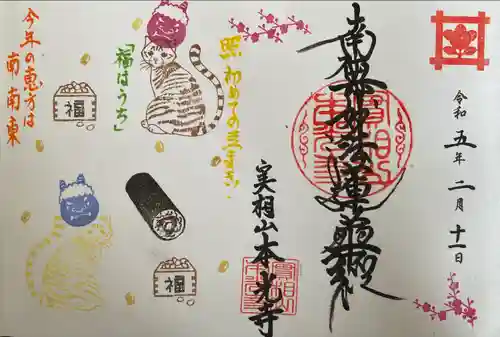 令和五年二月十一日
南無妙法蓮華経
実相山本光寺
照 初めての豆まき
「福はうち」
今年の恵方は
南南東
福
福